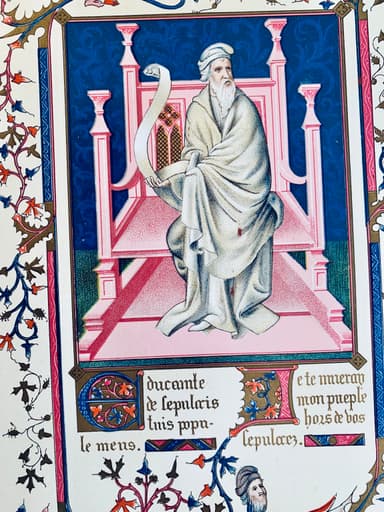 Educam te
de sepulcris
tuis popu-
le meus.
Je te
mon pueple
hors de vos
sepulcrez.